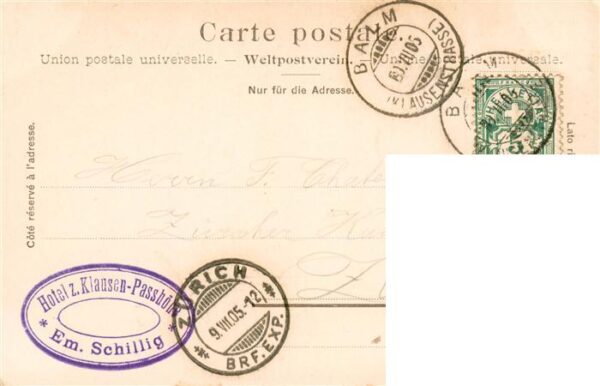 Carte postale.
Union postale universelle. — Weltpostverein. Unione postale universale.
Nur für die Adresse.
Côté réservé à l'adresse.
BALM
(KLAUSENSTRASSE)
BALM
Lato ri
Herrn F.
Zürcher
Z
Hotel z. Klausen-Passhöhe
* Em. Schillig *
ZÜRICH
9.VIII.05.-12
BRF. EXP.